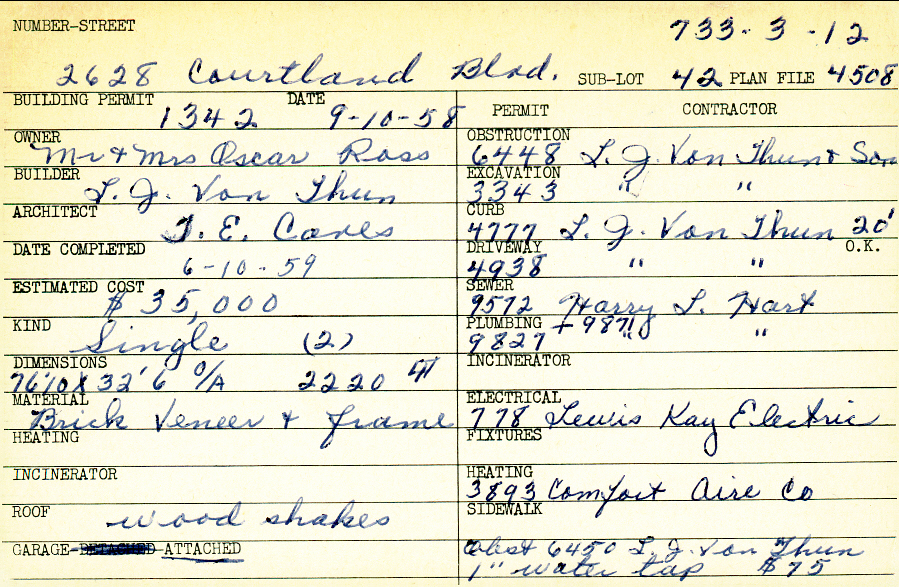 NUMBER-STREET 733-3-12
2628 Courtland Blvd. SUB-LOT 42 PLAN FILE 4508
BUILDING PERMIT 1342 DATE 9-10-58
OWNER Mr & Mrs Oscar Ross
BUILDER L. J. Von Thun
ARCHITECT J. E. Caves
DATE COMPLETED 6-10-59
ESTIMATED COST $35,000
KIND Single (2)
DIMENSIONS 76'10 X 32'6 O/A 2220
MATERIAL Brick Veneer & frame
HEATING
INCINERATOR
ROOF wood shakes
GARAGE-DETACHED-ATTACHED
PERMIT CONTRACTOR
OBSTRUCTION 6448 L. J. Von Thun & Son
EXCAVATION 3343 " "
CURB 4777 L. J. Von Thun 20' O.K.
DRIVEWAY 4938 " "
SEWER 9572 Harry L. Hart
PLUMBING 9827 + 9871 " "
INCINERATOR
ELECTRICAL 778 Lewis Kay Electric
FIXTURES
HEATING 3893 Comfort Aire Co
SIDEWALK
Obst 6450 L. J. Von Thun
1" water tap $75